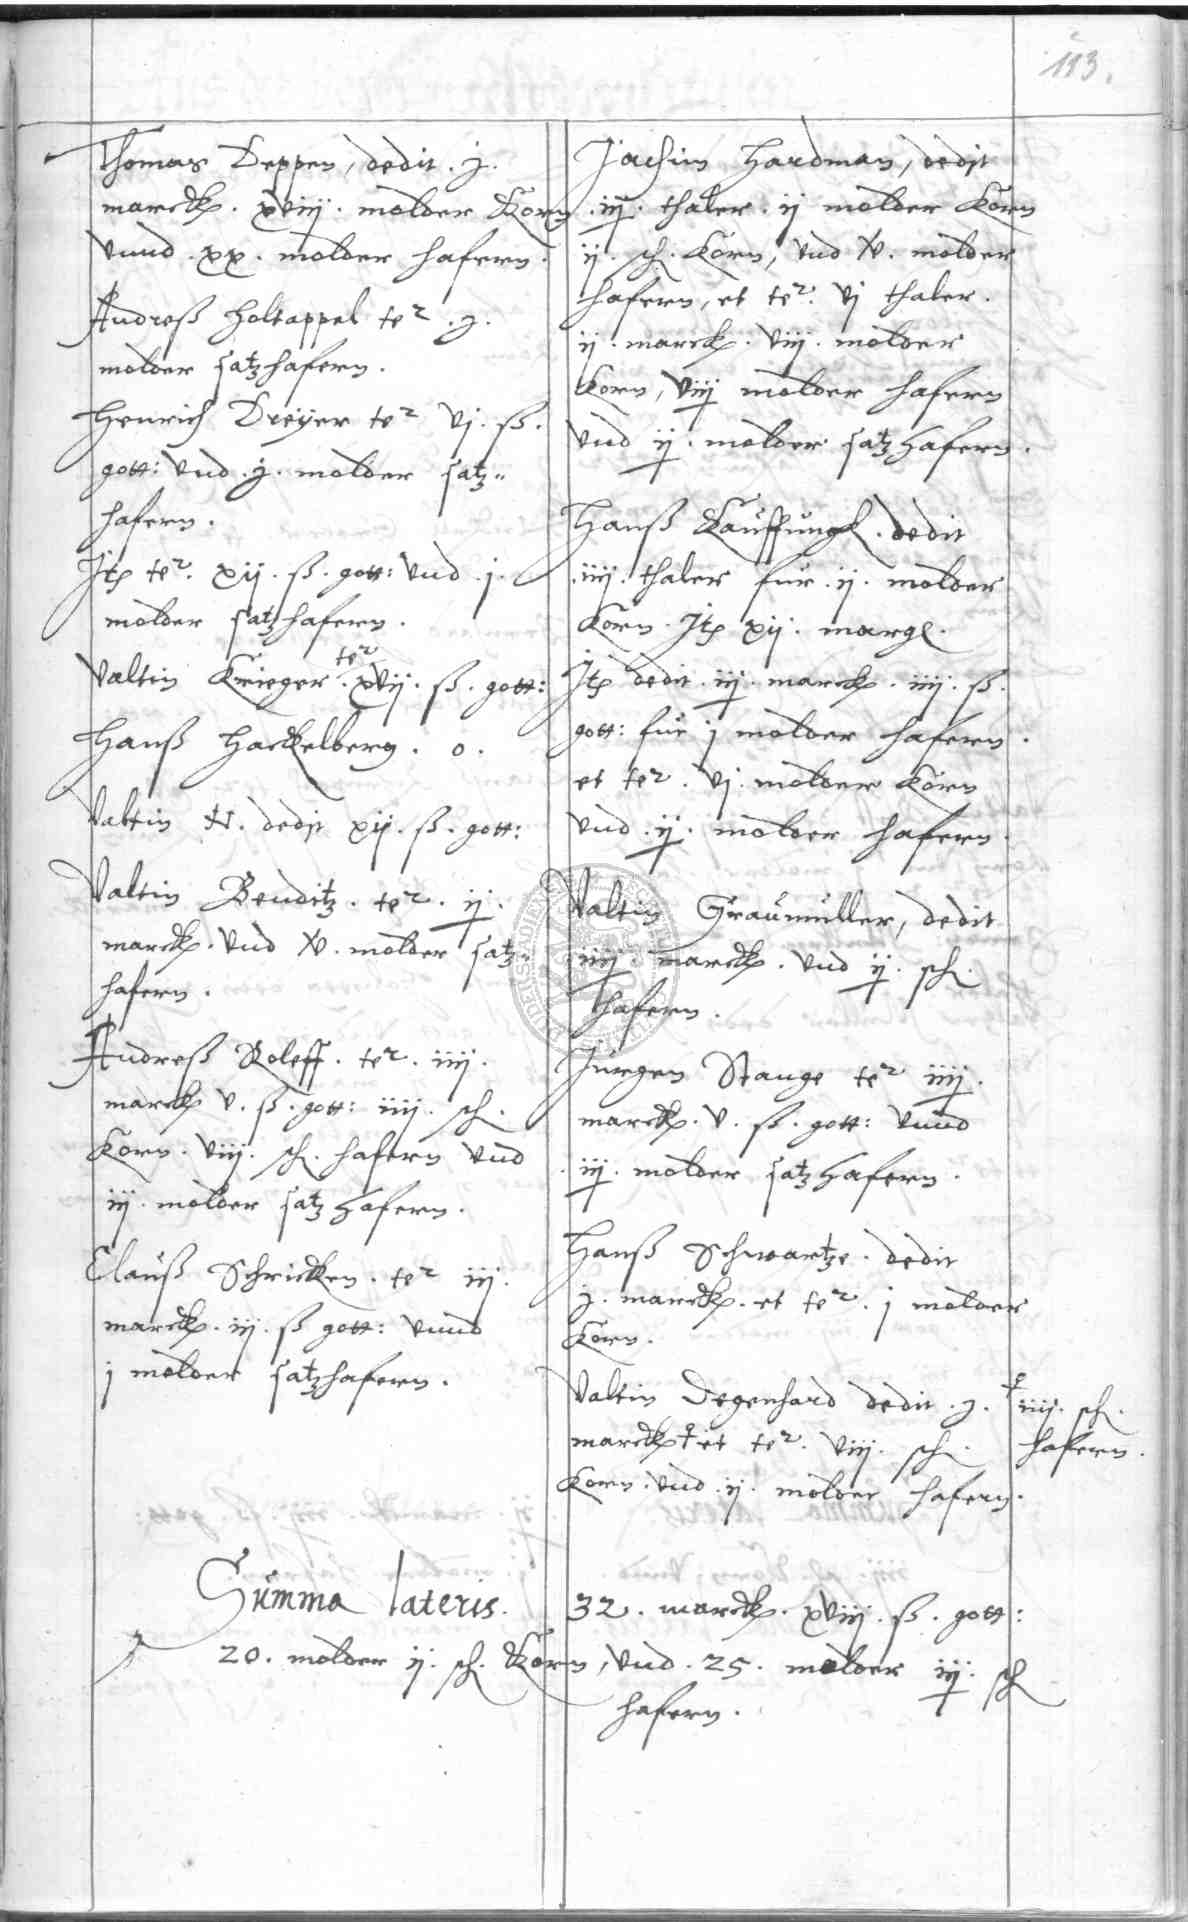 113.
Thomas Deppen, dedit . j.
marck. xviij . molder Korn
vnnd . xx . molder hafern.
Andreß Holtappel te2 . j.
molder satzhafern.
Henrich Dreÿer te2 vj . ß.
gott: vnd . j . molder satz=
hafern.
Itp te2. xij . ß . gott: vnd . j.
molder satzhafern.
Valtin Krieger te2 . xvij . ß . gott:
Hanß Hackelberg . o.
Valtin N. dedit xij . ß . gott:
Valtin Benditz . te2 . ij.
marck . vnd v . molder satz=
hafern.
Andreß Roleff . te2 . iiij.
marck v . ß . gott: iiij . sch.
Korn . viij . sch . hafern vnd
iij . molder satzhafern.
Clauß Schricken . te2 iij.
marck . iij . ß gott: vnnd
j molder satzhafern.
Jachim Hardman, dedit
. iij . thaler . ij molder Korn
ij . sch . Korn, vnd v . molder
hafern, et te2. vj thaler.
ij . marck . viij . molder
Korn, viij molder hafern
vnd ij . molder satzhafern.
Hanß Kauffungk . dedit
. iiij . thaler für . ij . molder
Korn . Itp xij . margl.
Itp dedit . iij . marck . iiij . ß.
gott: für j molder hafern.
et te2 . vj . molder Korn
vnd . ij . molder hafern.
Valtin Graümüller, dedit
iiij . marck . vnd ij . sch.
hafern.
Jurgen Stange te2 iiij.
marck . v . ß . gott: vnnd
. iij . molder satzhafern.
Hanß Schwartze . dedit
j . marck . et te2 . j molder
Korn.
Valtin Degenhard dedit . j.
marck ♀ et te2. viij . sch.
Korn . vnd . ij . molder hafern.
♀ iiij . sch.
hafern.
Summa lateris. 32 . marck . xviij . ß . gott:
20 . molder ij . sch . Korn, vnd . 25 . molder iij . sch
hafern.